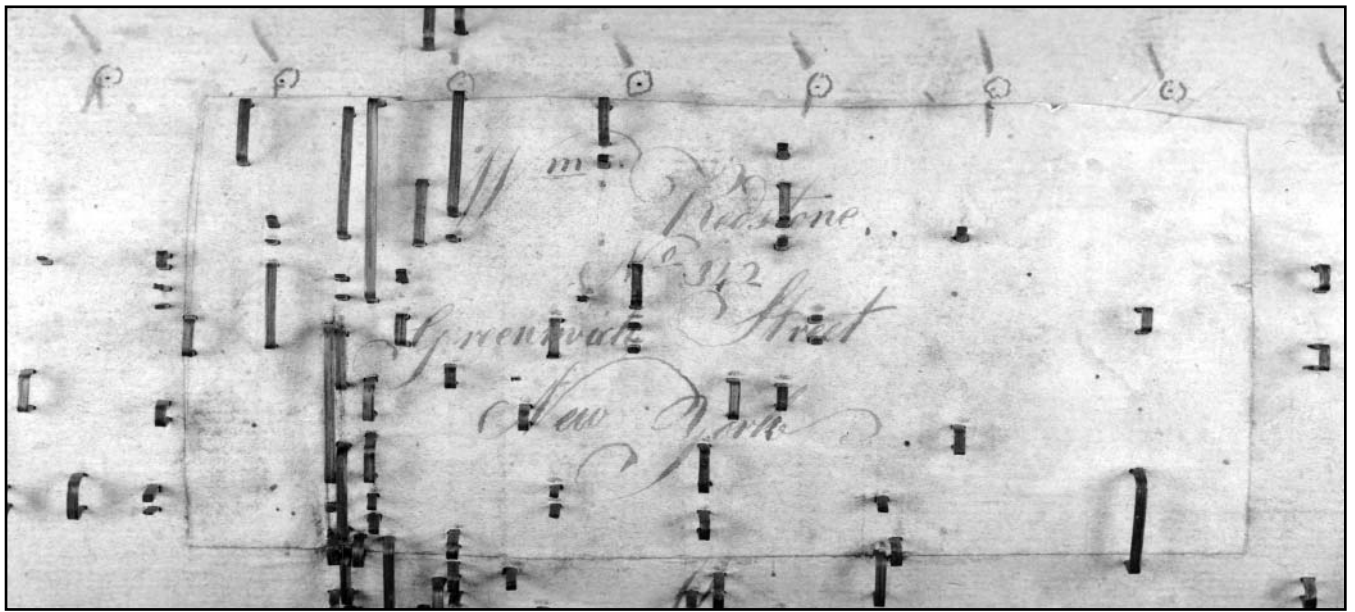 Wm.
Redstone.
No. 342
Greenwich Street
New York